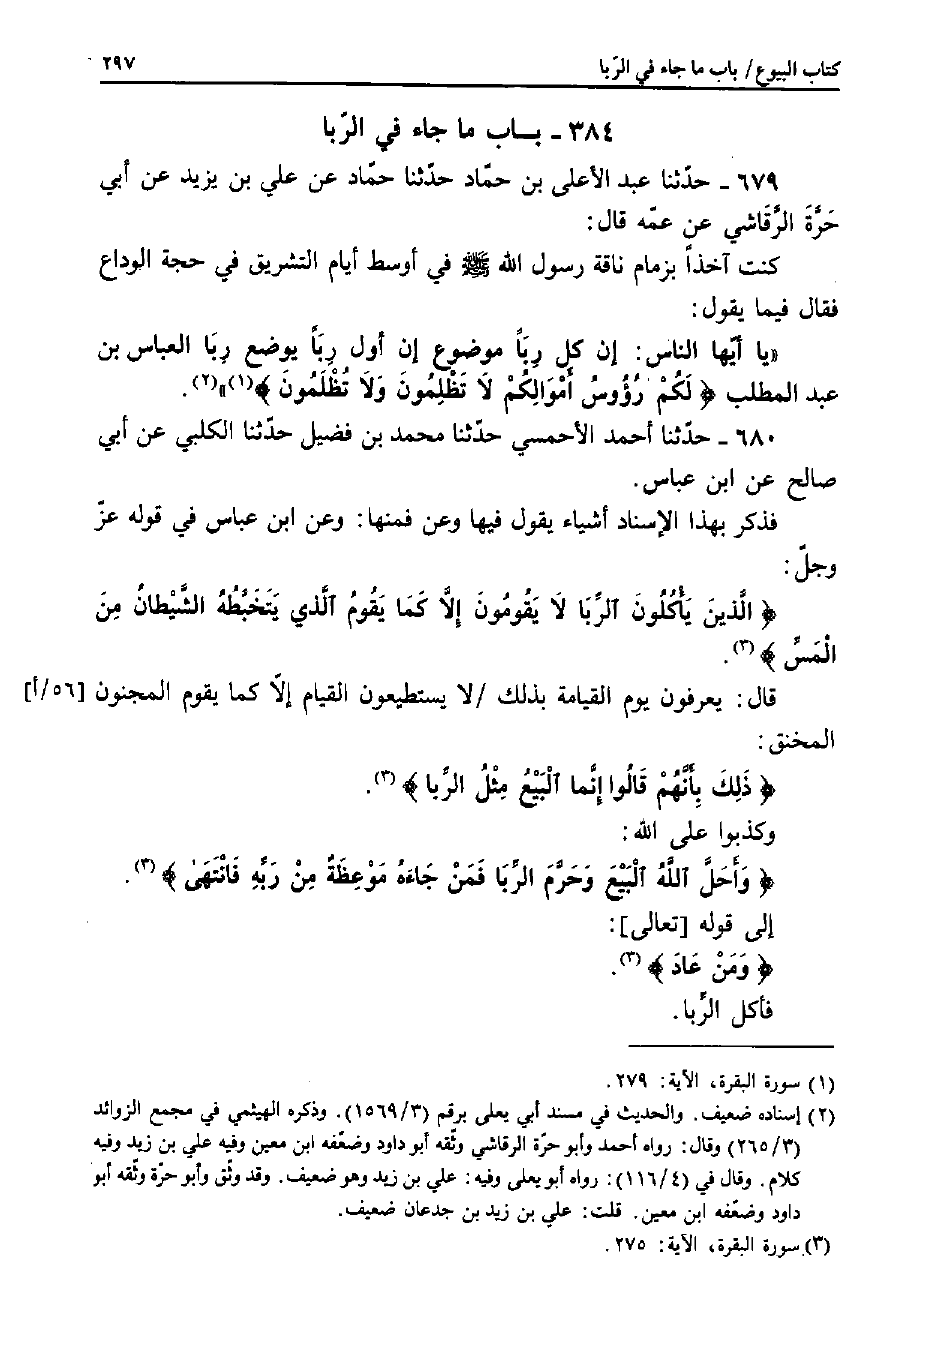 كتاب البيوع / باب ما جاء في الرّبا ٢٩٧
٣٨٤ ـ بـاب ما جاء في الرّبا
٦٧٩ ـ حدّثنا عبد الأعلى بن حمّاد حدّثنا حمّاد عن علي بن يزيد عن أبي
حَرَّةَ الرَّقَاشي عن عمّه قال:
كنت آخذاً بزمام ناقة رسول الله ﷺ في أوسط أيام التشريق في حجة الوداع
فقال فيما يقول:
«يا أيّها الناس: إن كل رِبَاً موضوع إن أول رِبَاً يوضع رِبَا العباس بن
عبد المطلب ﴿ لَكُمْ رُؤُوسُ أَمْوَالِكُمْ لَا تَظْلِمُونَ وَلَا تُظْلَمُونَ ﴾(١)»(٢).
٦٨٠ ـ حدّثنا أحمد الأحمسي حدّثنا محمد بن فضيل حدّثنا الكلبي عن أبي
صالح عن ابن عباس.
فذكر بهذا الإسناد أشياء يقول فيها وعن فمنها: وعن ابن عباس في قوله عزّ
وجلّ:
﴿ الَّذينَ يَأْكُلُونَ الرِّبَا لَا يَقُومُونَ إِلَّا كَمَا يَقُومُ الَّذي يَتَخَبَّطُهُ الشَّيْطانُ مِنَ
الْمَسِّ ﴾(٣).
قال: يعرفون يوم القيامة بذلك /لا يستطيعون القيام إلّا كما يقوم المجنون [٥٦/أ]
المخنق:
﴿ ذَلِكَ بِأَنَّهُمْ قَالُوا إِنَّما الْبَيْعُ مِثْلُ الرِّبا ﴾(٣).
وكذبوا على الله:
﴿ وَأَحَلَّ اللَّهُ الْبَيْعَ وَحَرَّمَ الرِّبَا فَمَنْ جَاءَهُ مَوْعِظَةٌ مِنْ رَبِّهِ فَانْتَهَىٰ ﴾(٣).
إلى قوله [تعالى]:
﴿ وَمَنْ عَادَ ﴾(٣).
فأكل الرِّبا.
(١) سورة البقرة، الآية: ٢٧٩.
(٢) إسناده ضعيف. والحديث في مسند أبي يعلى برقم (١٥٦٩/٣). وذكره الهيثمي في مجمع الزوائد
(٢٦٥/٣) وقال: رواه أحمد وأبو حرّة الرقاشي وثّقه أبو داود وضعّفه ابن معين وفيه علي بن زيد وفيه
كلام. وقال في (١١٦/٤): رواه أبو يعلى وفيه: علي بن زيد وهو ضعيف. وقد وثّق وأبو حرّة وثّقه أبو
داود وضعّفه ابن معين. قلت: علي بن زيد بن جدعان ضعيف.
(٣) سورة البقرة، الآية: ٢٧٥.